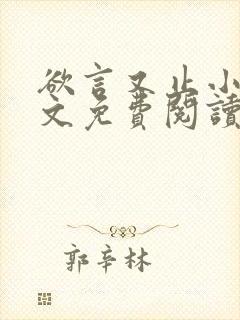 欲言又止小
文免費閱讀
郭辛林